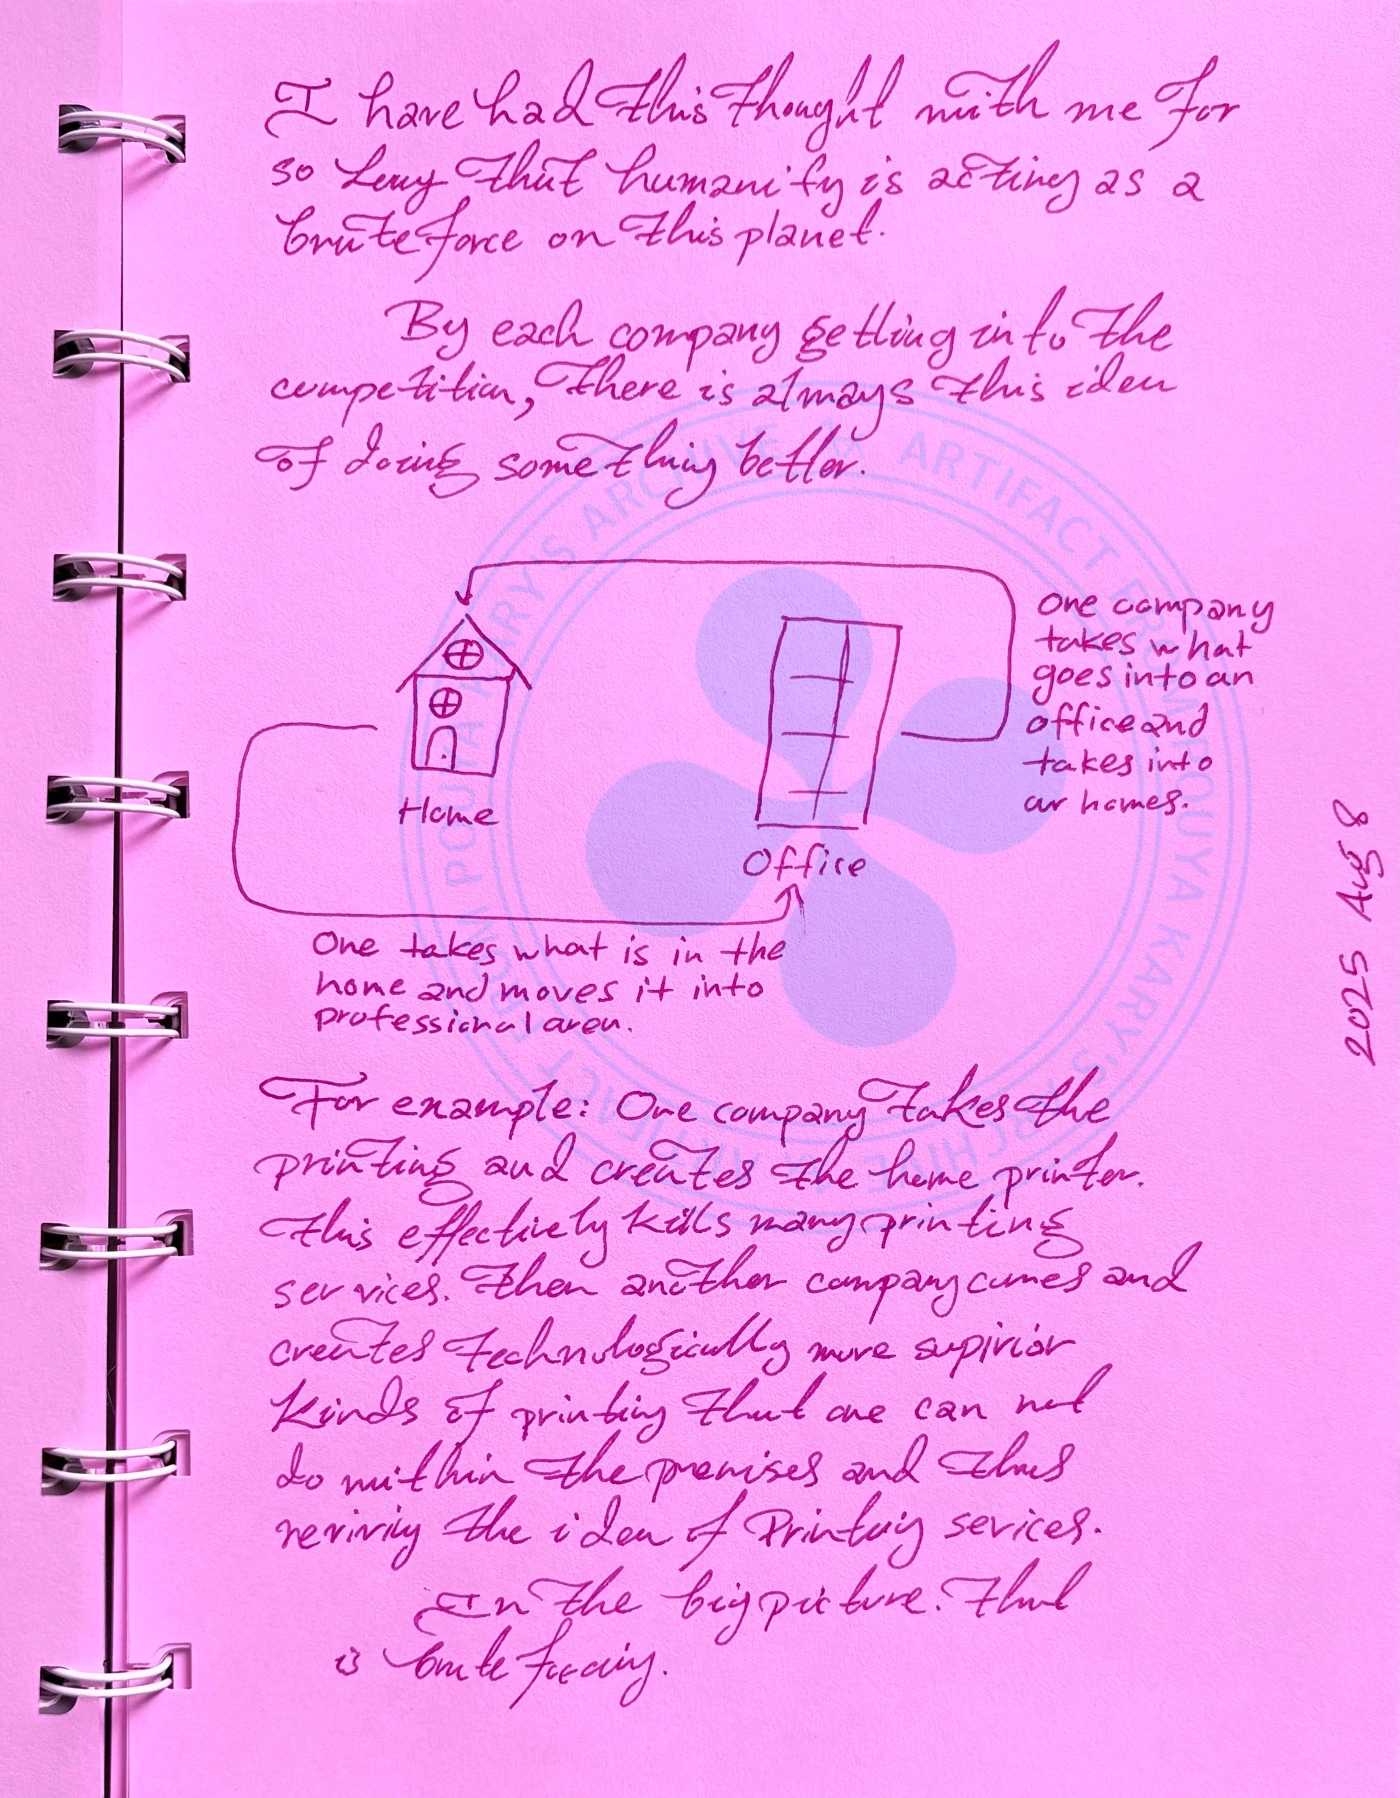 I have had this thought with me for
so long that humanity is acting as a
brute force on this planet.
By each company getting into the
competition, there is always this idea
of doing something better.
One company
takes what
goes into an
office and
takes into
our homes.
Home
Office
One takes what is in the
home and moves it into
professional area.
For example: One company takes the
printing and creates the home printer.
This effectively kills many printing
services. Then another company comes and
creates technologically more supirior
kinds of printing that one can not
do within the premises and thus
reviving the idea of Printing sevices.
In the big picture. That
is brute forcing.
2025 Aug 8
FROM POUYA KARY'S ARCHIVE & ARTIFACT FROM POUYA KARY'S ARCHIVE & ARTIFACT